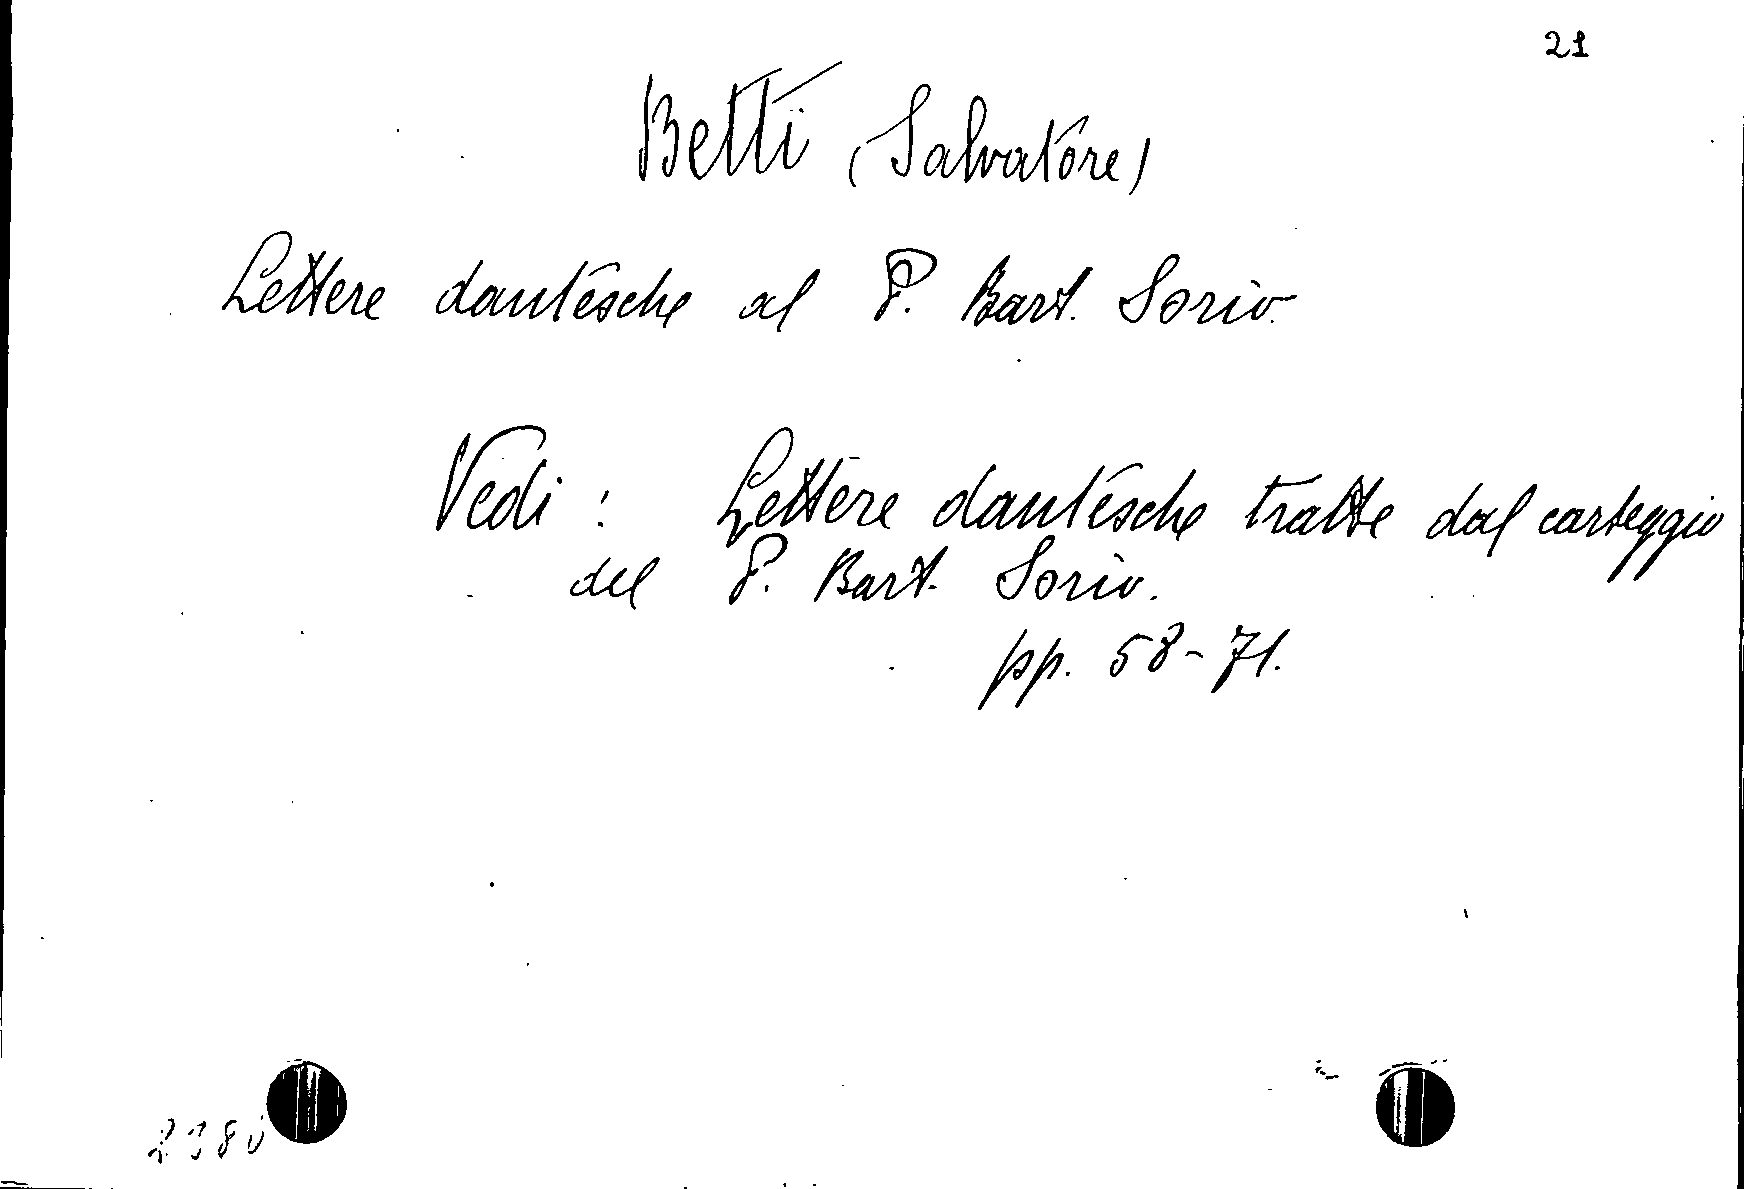 21
Betti (Salvatore)
Lettere dantesche al P. Bart. Sorio.
Vedi: Lettere dantesche tratte dal carteggio
del P. Bart. Sorio.
pp. 58-71.